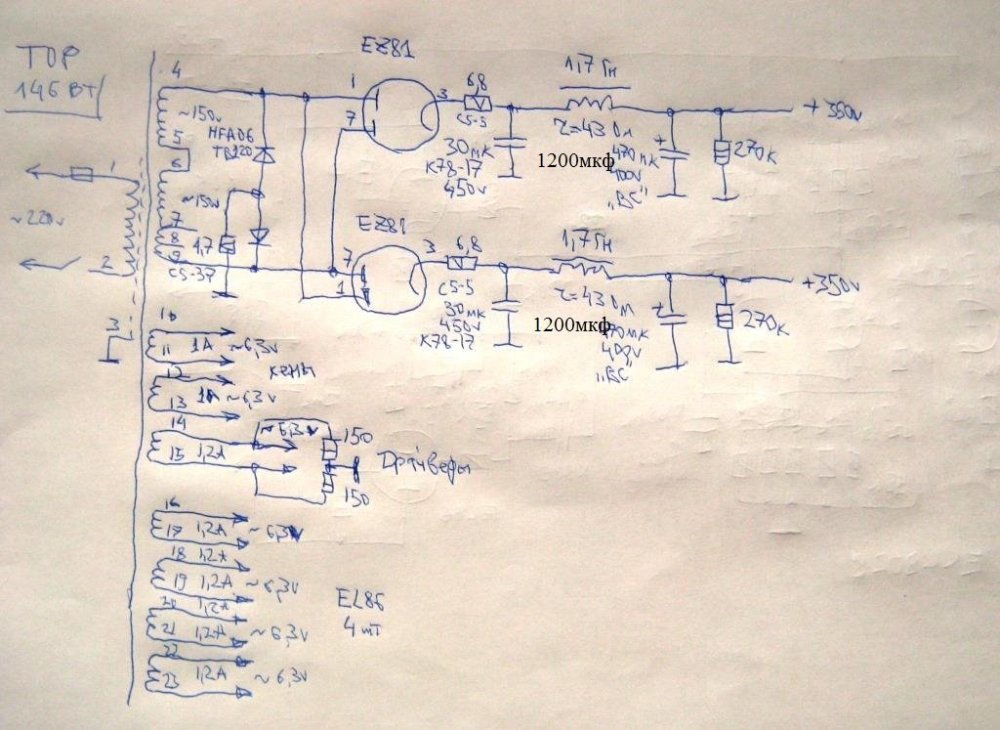 ТОР
146 ВТ
~220v
1
2
3
4
~150v
5
6
~150v
7
8
9
HFA06
TB120
4,7
С5-37
EZ81
1
7
3
6,8
С5-5
30мк
К78-17
450v
1200мкф
1,7 Гн
r=43 Ом
470мк
400v
"ВС"
270к
+350v
EZ81
7
1
3
6,8
С5-5
30мк
450v
К78-17
1200мкф
1,7 Гн
r=43 Ом
470мк
400v
"ВС"
270к
+350v
10
11 1А ~6,3v
12
13 1А ~6,3v
14
15 1,2А
~6,3v
150
150
Драйверы
16
17 1,2А ~6,3v
18 1,2А
19 1,2А ~6,3v
20 1,2А
21 1,2А ~6,3v
22
23 1,2А ~6,3v
EL86
4 шт